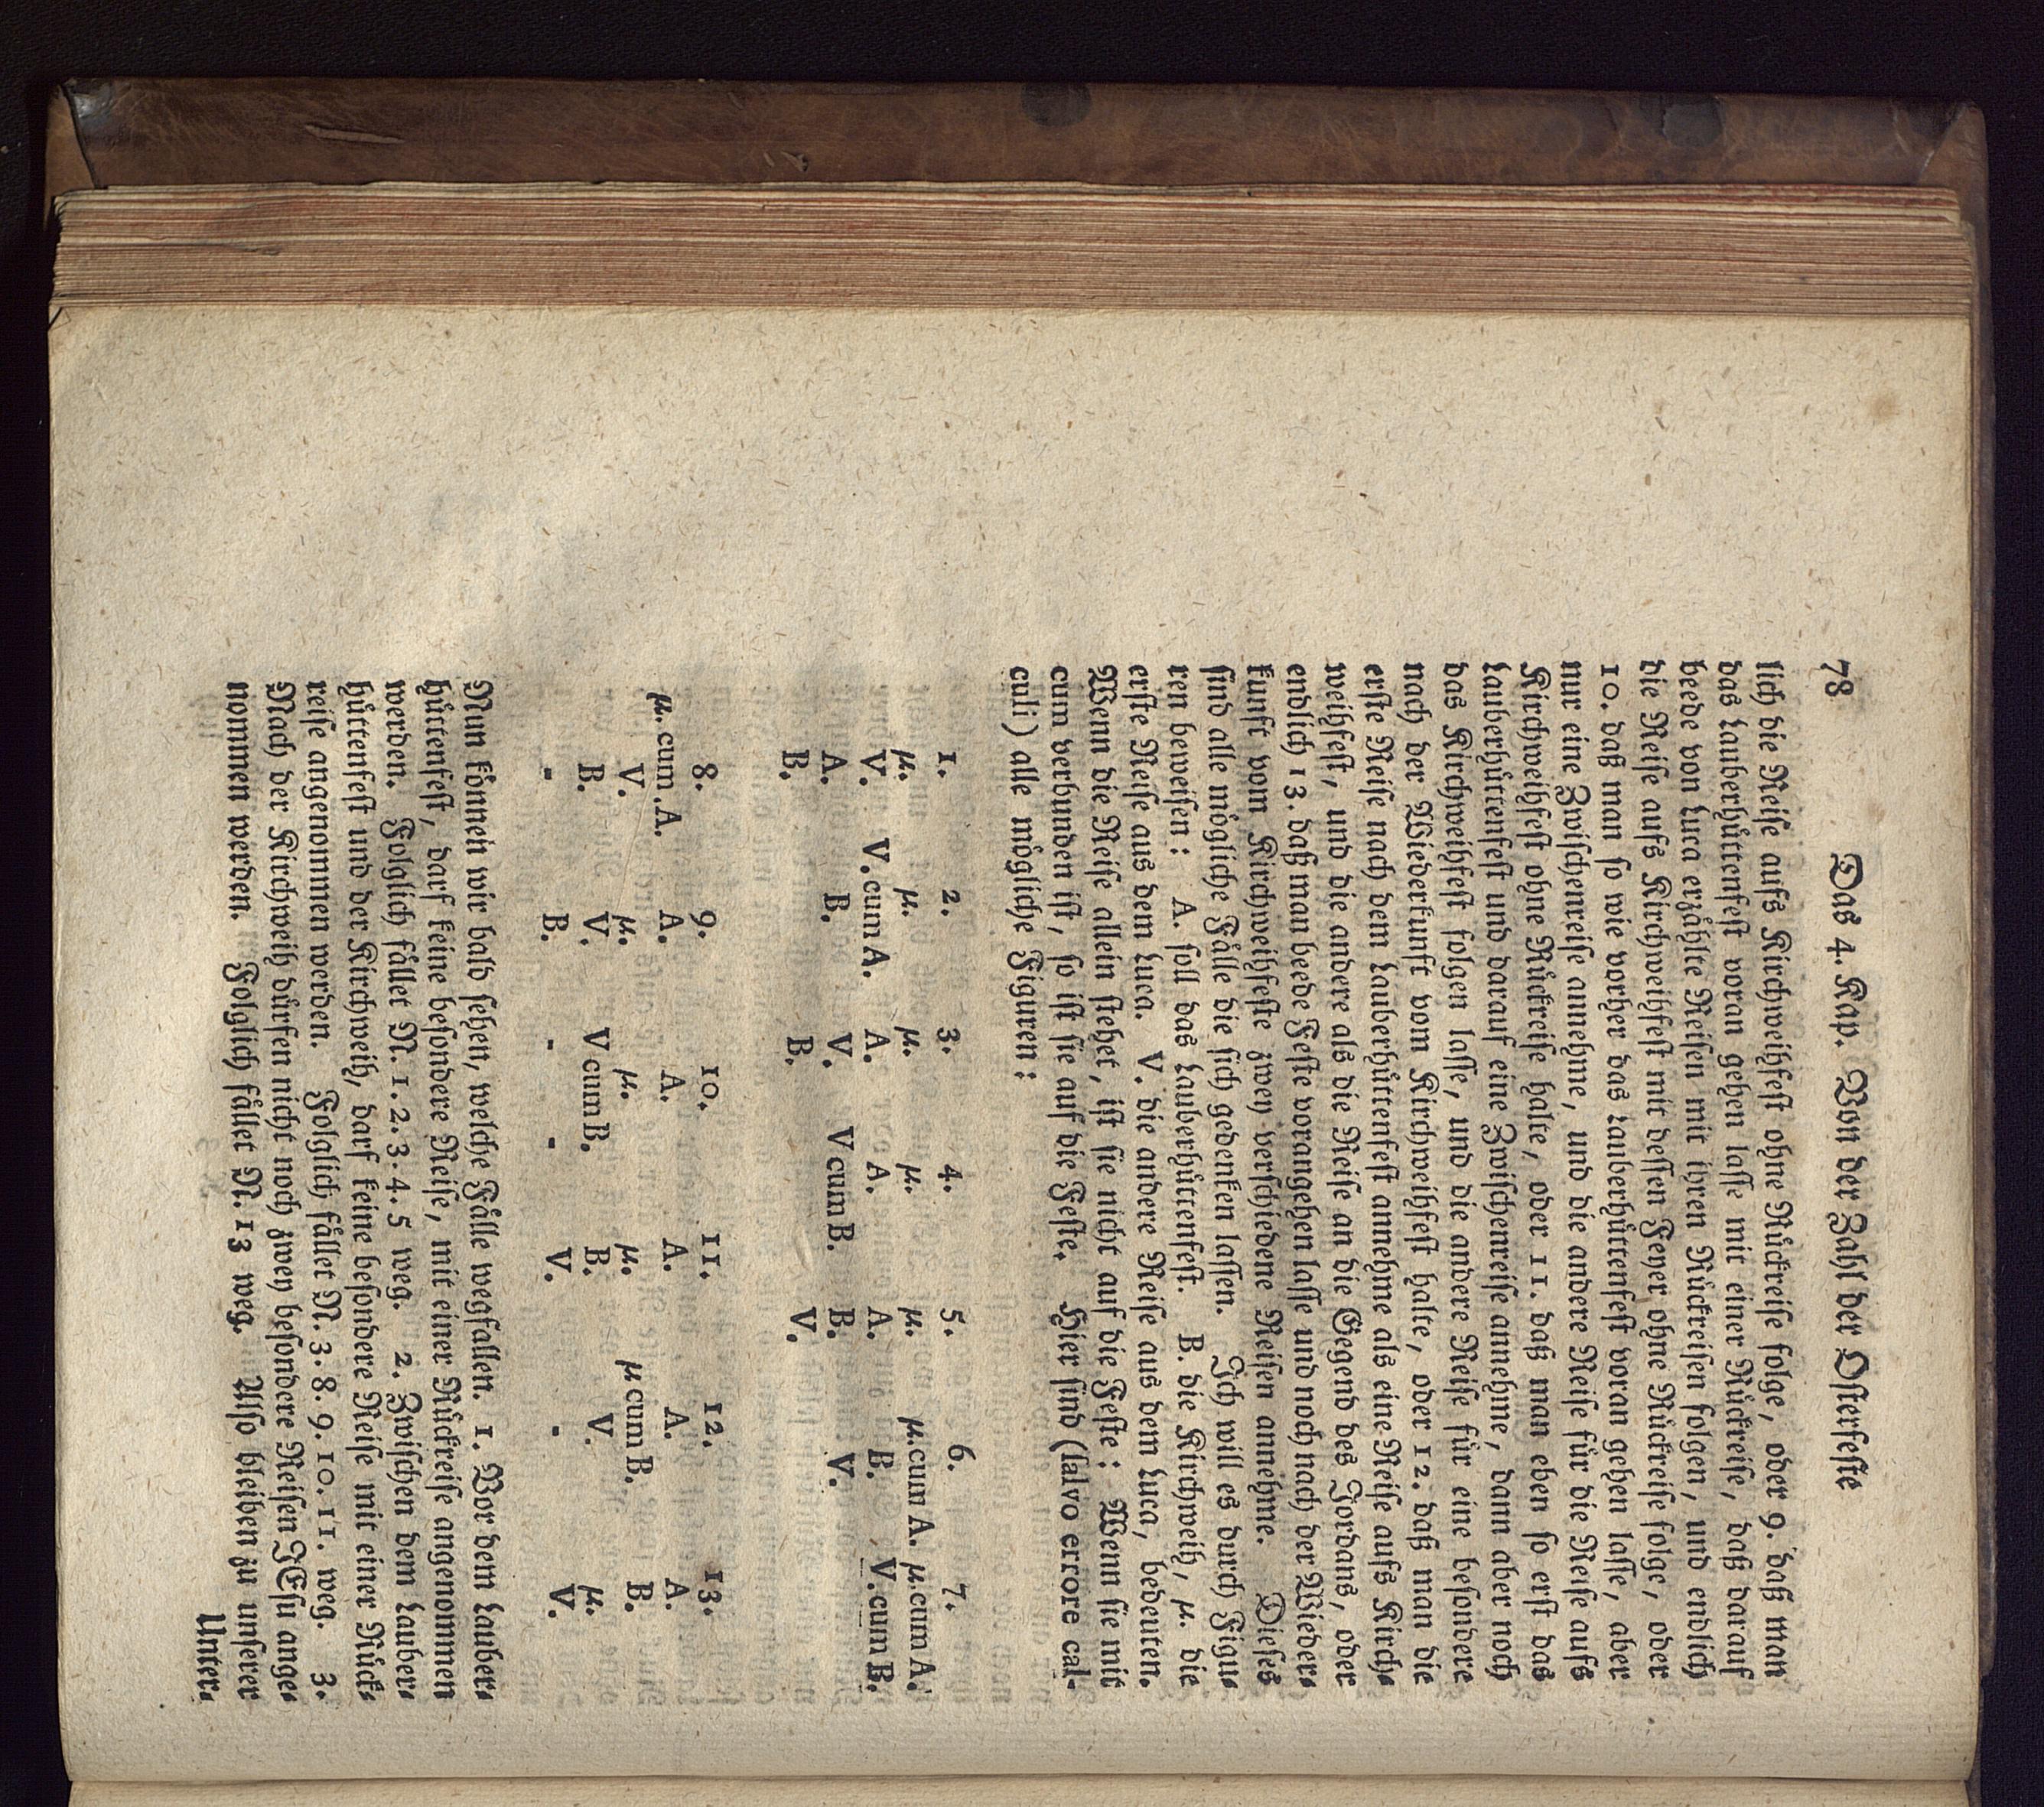 78 Das 4. Kap. Von der Zahl der Osterfeste
lich die Reise aufs Kirchweihfest ohne Rückreise folge, oder 9. daß man
das Lauberhüttenfest voran gehen lasse mit einer Rückreise, daß darauf
beede von Luca erzählte Reisen mit ihren Rückreisen folgen, und endlich
die Reise aufs Kirchweihfest mit dessen Feyer ohne Rückreise folge, oder
10. daß man so wie vorher das Lauberhüttenfest voran gehen lasse, aber
nur eine Zwischenreise annehme, und die andere Reise für die Reise aufs
Kirchweihfest ohne Rückreise halte, oder 11. daß man eben so erst das
Lauberhüttenfest und darauf eine Zwischenreise annehme, dann aber noch
das Kirchweihfest folgen lasse, und die andere Reise für eine besondere
nach der Wiederkunft vom Kirchweihfest halte, oder 12. daß man die
erste Reise nach dem Lauberhüttenfest annehme als eine Reise aufs Kirch-
weihfest, und die andere als die Reise an die Gegend des Jordans, oder
endlich 13. daß man beede Feste vorangehen lasse und noch nach der Wieder-
kunft vom Kirchweihfeste zwey verschiedene Reisen annehme. Dieses
sind alle mögliche Fälle die sich gedenken lassen. Ich will es durch Figu-
ren beweisen: A. soll das Lauberhüttenfest. B. die Kirchweih, μ. die
erste Reise aus dem Luca. V. die andere Reise aus dem Luca, bedeuten.
Wenn die Reise allein stehet, ist sie nicht auf die Feste: Wenn sie mit
cum verbunden ist, so ist sie auf die Feste. Hier sind (salvo errore cal-
culi) alle mögliche Figuren:
1. 2. 3. 4. 5. 6. 7.
μ. μ. μ. μ. μ. μ. cum A. μ. cum A.
V. V. cum A. A. A. A. B. V. cum B.
A. B. V. V cum B. B. V.
B. B. V.
8. 9. 10. 11. 12. 13.
μ. cum A. A. A. A. A. A.
V. μ. μ. μ. μ cum B. B.
B. V. V cum B. B. V. μ.
- B. - - V. - V.
Nun können wir bald sehen, welche Fälle wegfallen. 1. Vor dem Lauber-
hüttenfest, darf keine besondere Reise, mit einer Rückreise angenommen
werden. Folglich fället N. 1. 2. 3. 4. 5 weg. 2. Zwischen dem Lauber-
hüttenfest und der Kirchweih, darf keine besondere Reise mit einer Rück-
reise angenommen werden. Folglich fället N. 3. 8. 9. 10. 11. weg. 3.
Nach der Kirchweih dürfen nicht noch zwey besondere Reisen JEsu ange-
nommen werden. Folglich fället N. 13 weg. Also bleiben zu unserer
Unter-